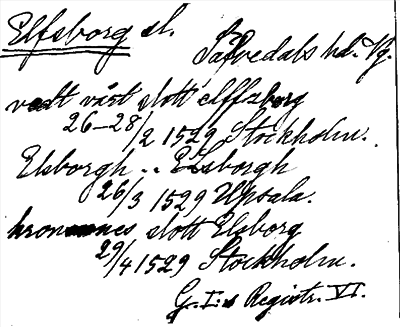 Elfsborg sl.
Säfvedals hd. Vg.
vedt vårt slott elffzborg
26-28/2 1529 Stockholm.
Elsborgh .. Elsborgh
26/3 1529 Upsala.
kronones slott Elsborg
29/4 1529 Stockholm.
G. I:s Registr. VI.